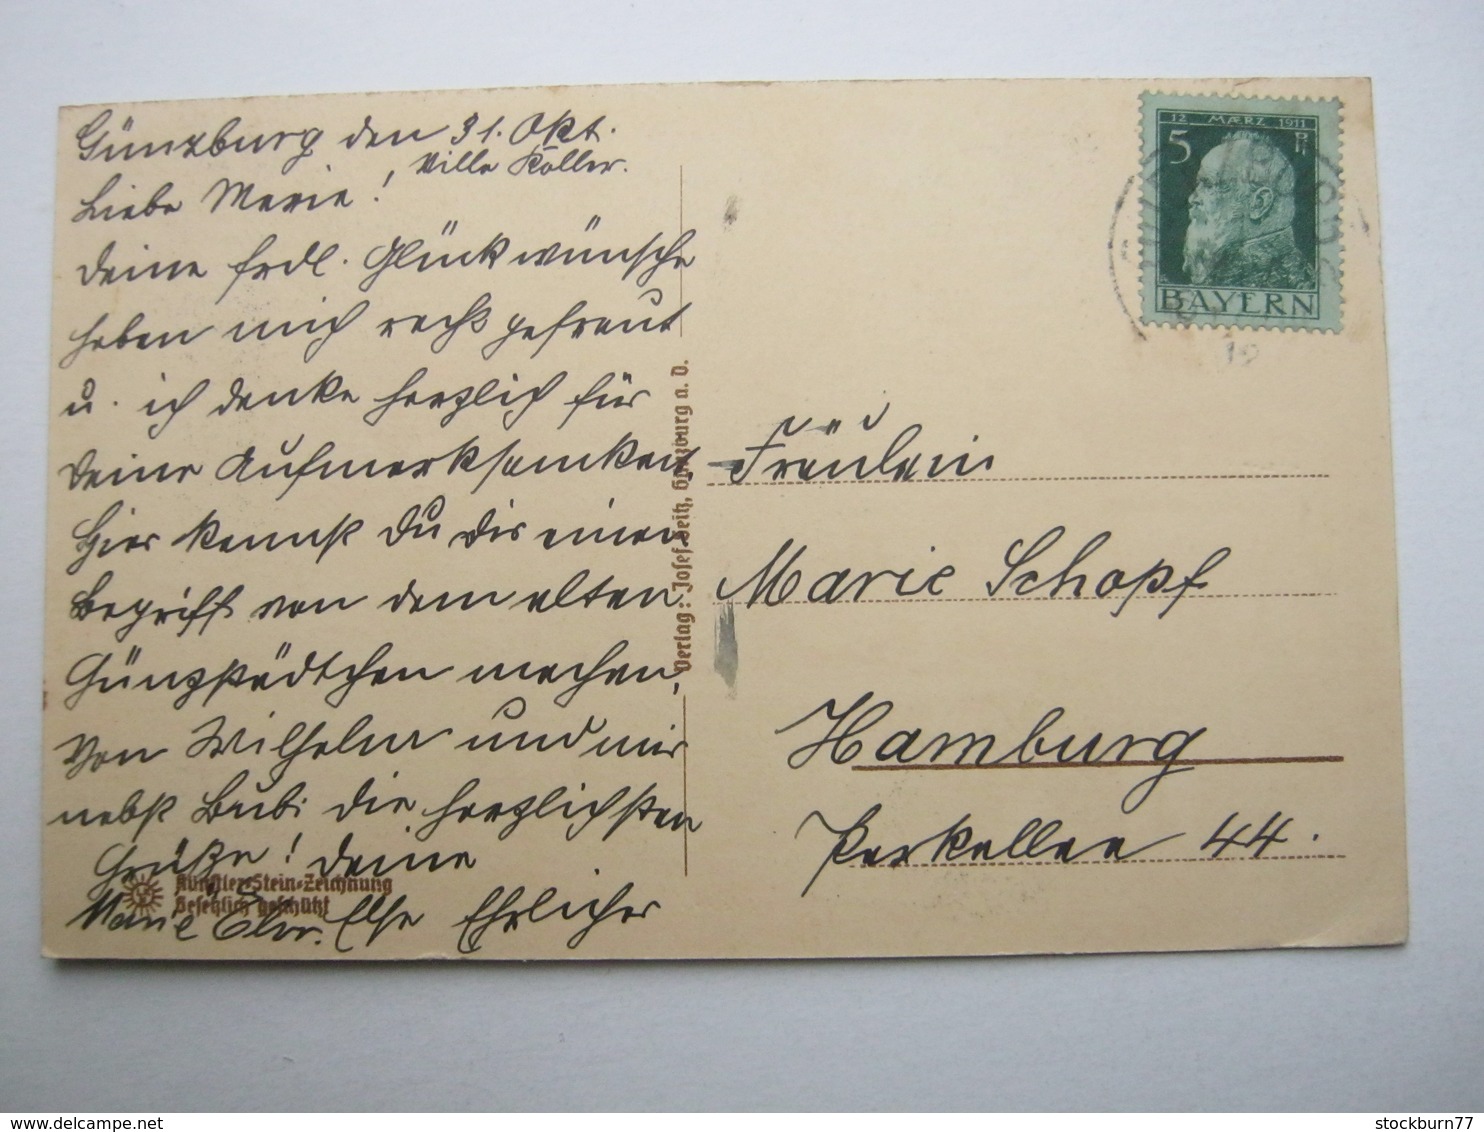 Günzburg den 31. Okt.
Villa Koller.
Liebe Marie!
Deine frdl. Glückwünsche
haben mich recht gefreut
u. ich danke herzlich für
Deine Aufmerksamkeit,
Hier kannst Du Dir einen
Begriff von dem alten
Günzstädtchen machen,
Von Wilhelm und mir
nebst Bubi die herzlichsten
Grüße! Deine
Else Ehrlicher
Künstler-Stein-Zeichnung
Gesetzlich geschützt
Verlag: Josef Seitz, Günzburg a. D.
12 MÆRZ 1911
5 Pf
BAYERN
Fräulein
Marie Schopf
Hamburg
Parkallee 44.
stockburn77